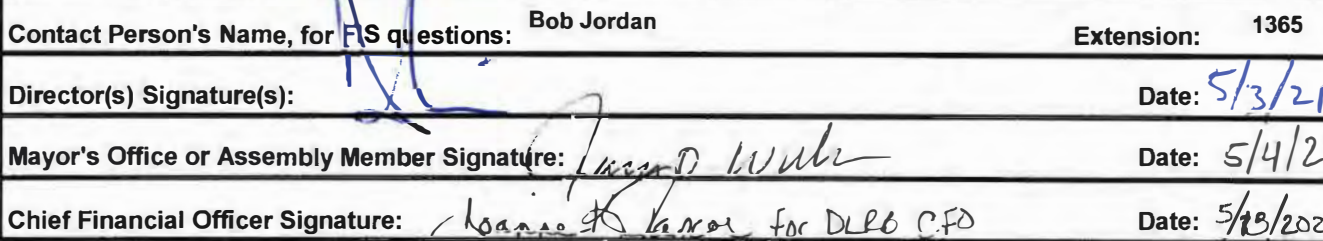 Contact Person's Name, for FIS questions: Bob Jordan Extension: 1365
Director(s) Signature(s): Date: 5/3/21
Mayor's Office or Assembly Member Signature: Date: 5/4/2
Chief Financial Officer Signature: for CFO Date: 5/18/202